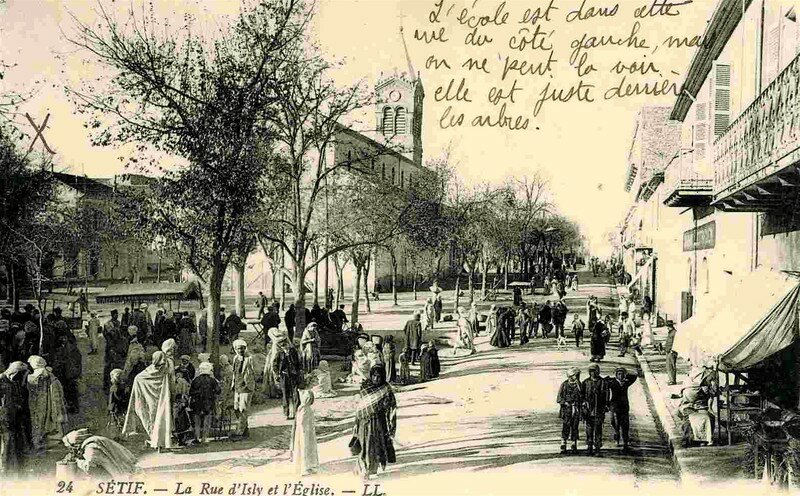 L'école est dans cette
rue du côté gauche, mais
on ne peut la voir
elle est juste derrière
les arbres.
24 SÉTIF. — La Rue d'Isly et l'Église. — LL.